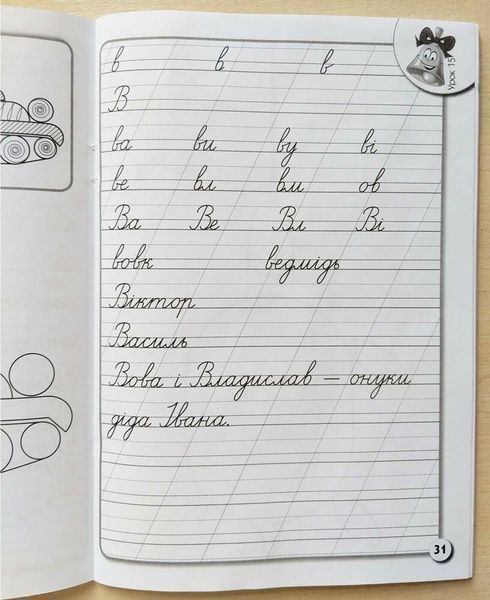 Урок 15
в в в
В
ва ви ву ві
ве вл вм ов
Ва Ве Вл Ві
вовк ведмідь
Віктор
Василь
Вова і Владислав — онуки
діда Івана.
31